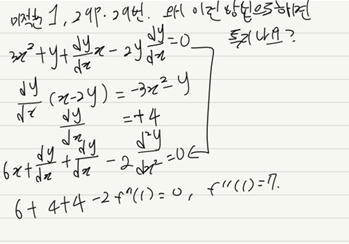 미적분 1, 29P. 29번. 왜 이런 방법으로하면
3x²+y+dy/dx x-2y dy/dx=0
dy/dx (x-2y) = -3x²-y
dy/dx = +4
6x+dy/dx+dy/dx-2 d²y/dx²=0
6+4+4-2f''(1)=0, f''(1)=7.